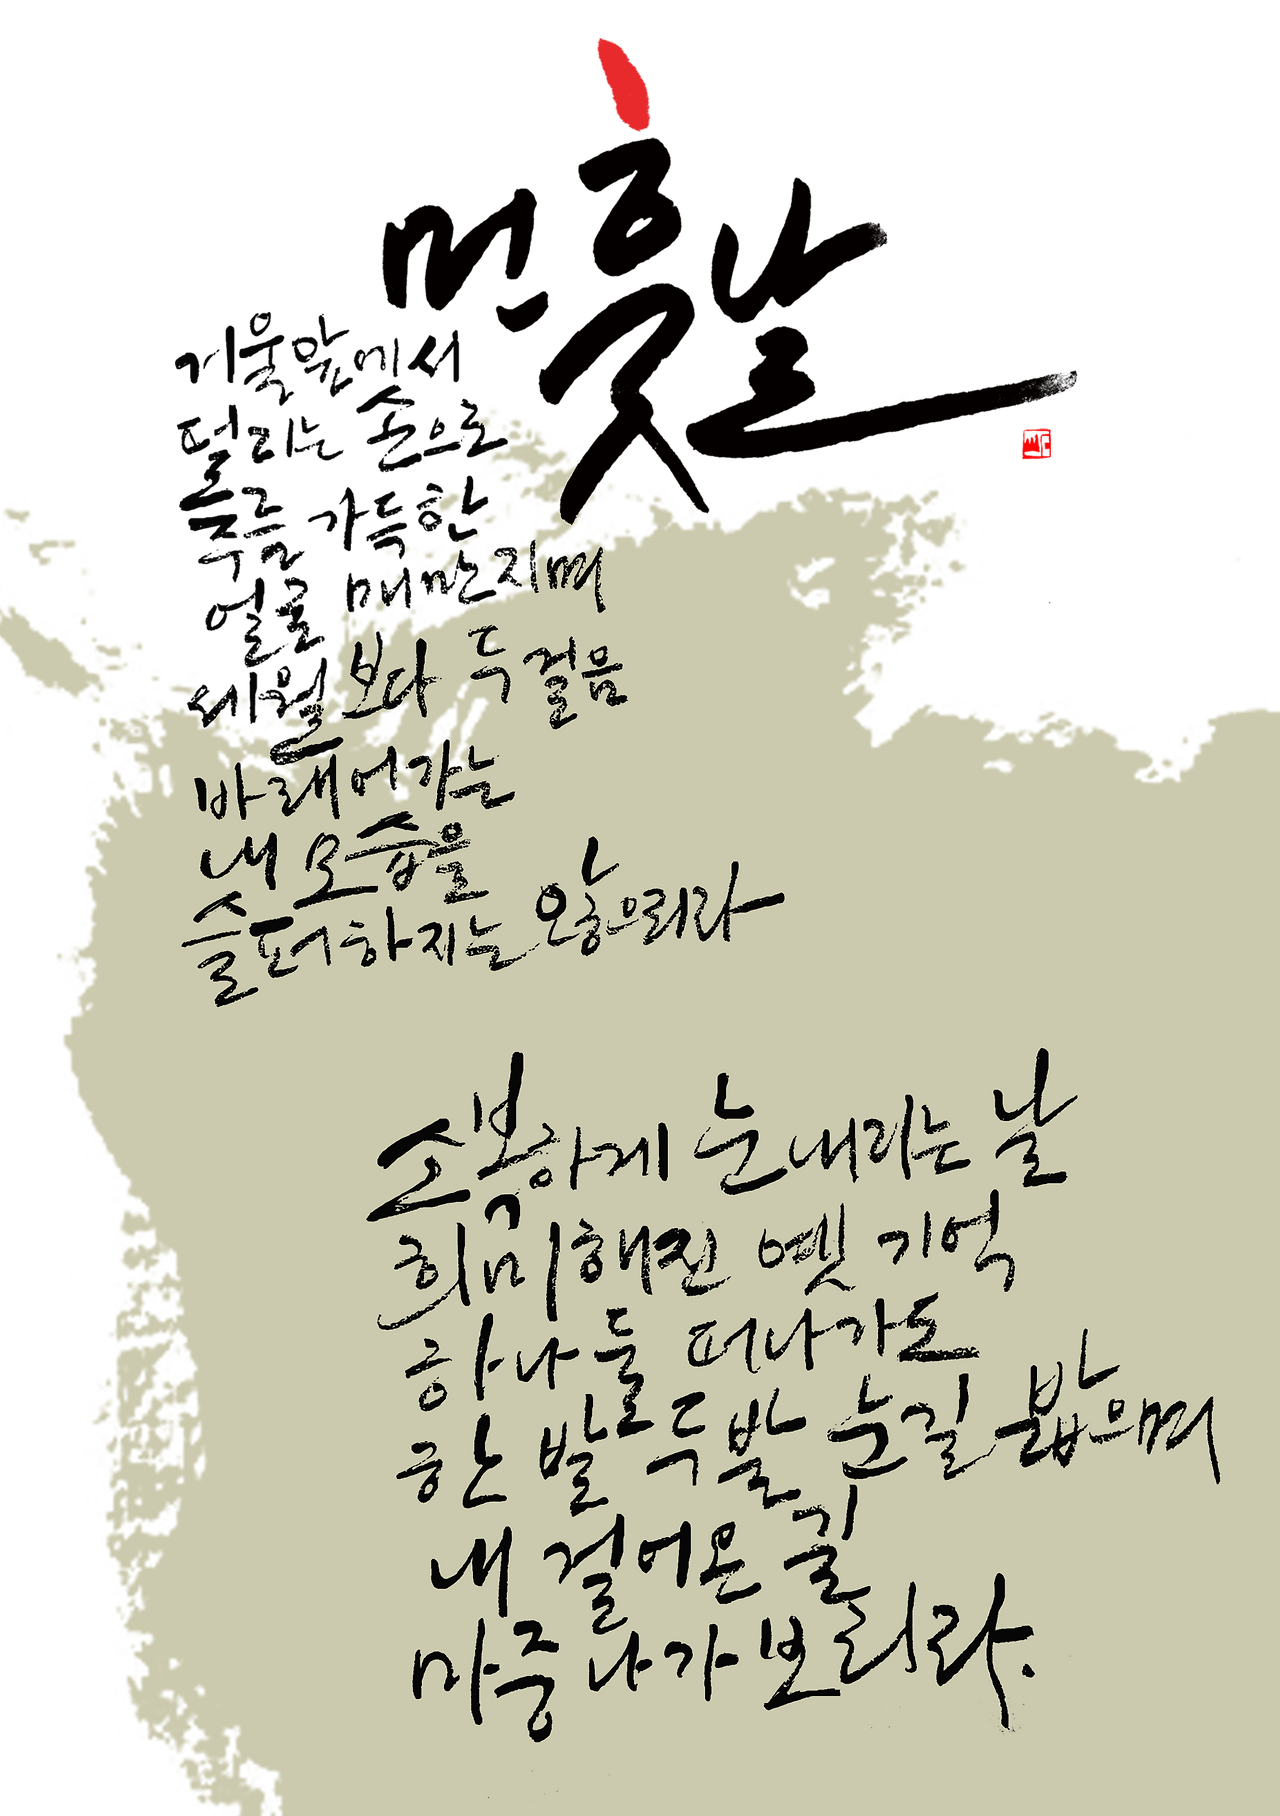 먼 훗날
거울 앞에서
떨리는 손으로
주름 가득한
얼굴 매만지며
세월 보다 두 걸음
바래어 가는
내 모습을
슬퍼하지는 않으리라
소복하게 눈 내리는 날
희미해진 옛 기억
하나 둘 떠나가도
한 발 두 발 눈길 밟으며
내 걸어온 길
마중 나가 보리라.